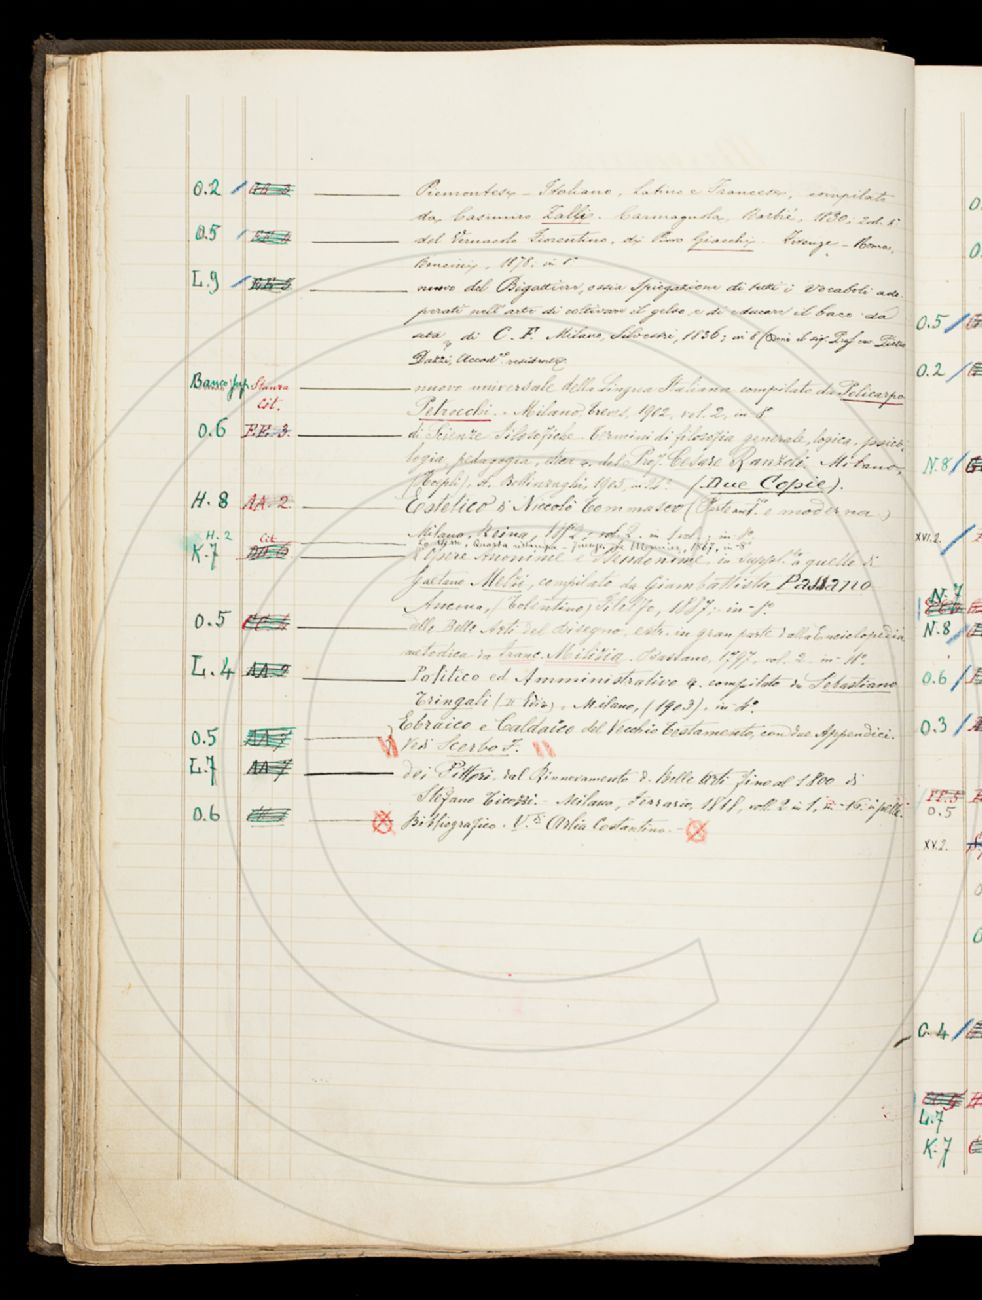 O.2 Piemontese - Italiano, Latino e Francese, compilato
da Casimiro Zalli. Carmagnola, Barbié, 1830, 2 vol. 8°
O.5 del Vernacolo Fiorentino, di Pirro Giacchi. Firenze - Roma,
Bencini, 1878, in 8°
L.9 nuovo del Bigattiere, ossia Spiegazione di tutti i vocaboli ado-
perati nell'arte di coltivare il gelso e di educare il baco da
seta, di C. F. Milano, Silvestri, 1836; in 8°
Dazzi, Accad.co residente
Stanza nuovo universale della lingua Italiana compilato da Policarpo
Cit. Petrocchi. - Milano, Treves, 1902, vol. 2, in 8°
O.6 F.F. 3. di Scienze Filosofiche. Termini di filosofia generale, logica, psico-
logia, pedagogia, etica, del Prof. Cesare Ranzoli. Milano,
(Hoepli), 1905, (Due Copie).
H. 8 AA. 2. Estetico di Niccolò Tommaseo (Parte ant.a e moderna)
Milano, Reina, 1852, vol. 2 in 1 vol., in 8°
H. 2 Cit. quarta ristampa - Firenze, Le Monnier, 1867, in 8°
K.7 d'Opere Anonime e Pseudonime in Suppl.to a quello di
Gaetano Melzi, compilato da Giambattista Passano
Ancona, 1887; in-8°
O.5 delle Belle Arti del disegno, estr. in gran parte dalla Enciclopedia
metodica da Franc. Milizia. Bassano, 1797, vol. 2 in 8°.
L.4 AA.2 Politico ed Amministrativo compilato da Sebastiano
Tringali Milano, (1903), in 8°.
O.5 Ebraico e Caldaico del Vecchio Testamento, con due Appendici.
Vedi Scerbo F.
L.7 AA.7 dei Pittori dal Rinnovamento d. Belle Arti fino al 1800 di
Stefano Ticozzi. - Milano, Ferrario, 1818, voll. 2 in 1,
O.6 Bibliografico. V.di Arlia Costantino. -
O.5
O.2
N.8
XVI.2.
N.7
N.8
O.6
O.3
FF.5
O.5
XV.2.
O.4
L.7
K.7